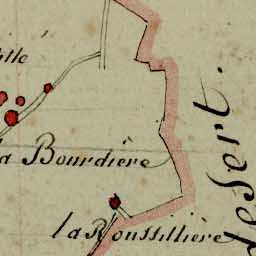 la Bourdière
la Roussillière
desert.